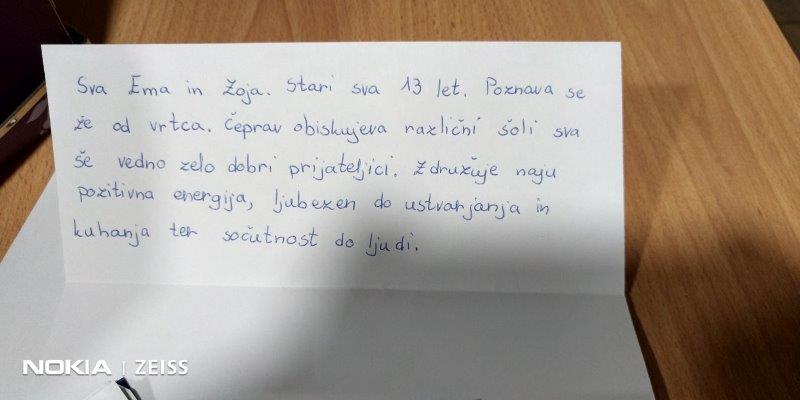 Sva Ema in Zoja. Stari sva 13 let. Poznava se
že od vrtca. Čeprav obiskujeva različni šoli sva
še vedno zelo dobri prijateljici. Združuje naju
pozitivna energija, ljubezen do ustvarjanja in
kuhanja ter sočutnost do ljudi.
NOKIA | ZEISS